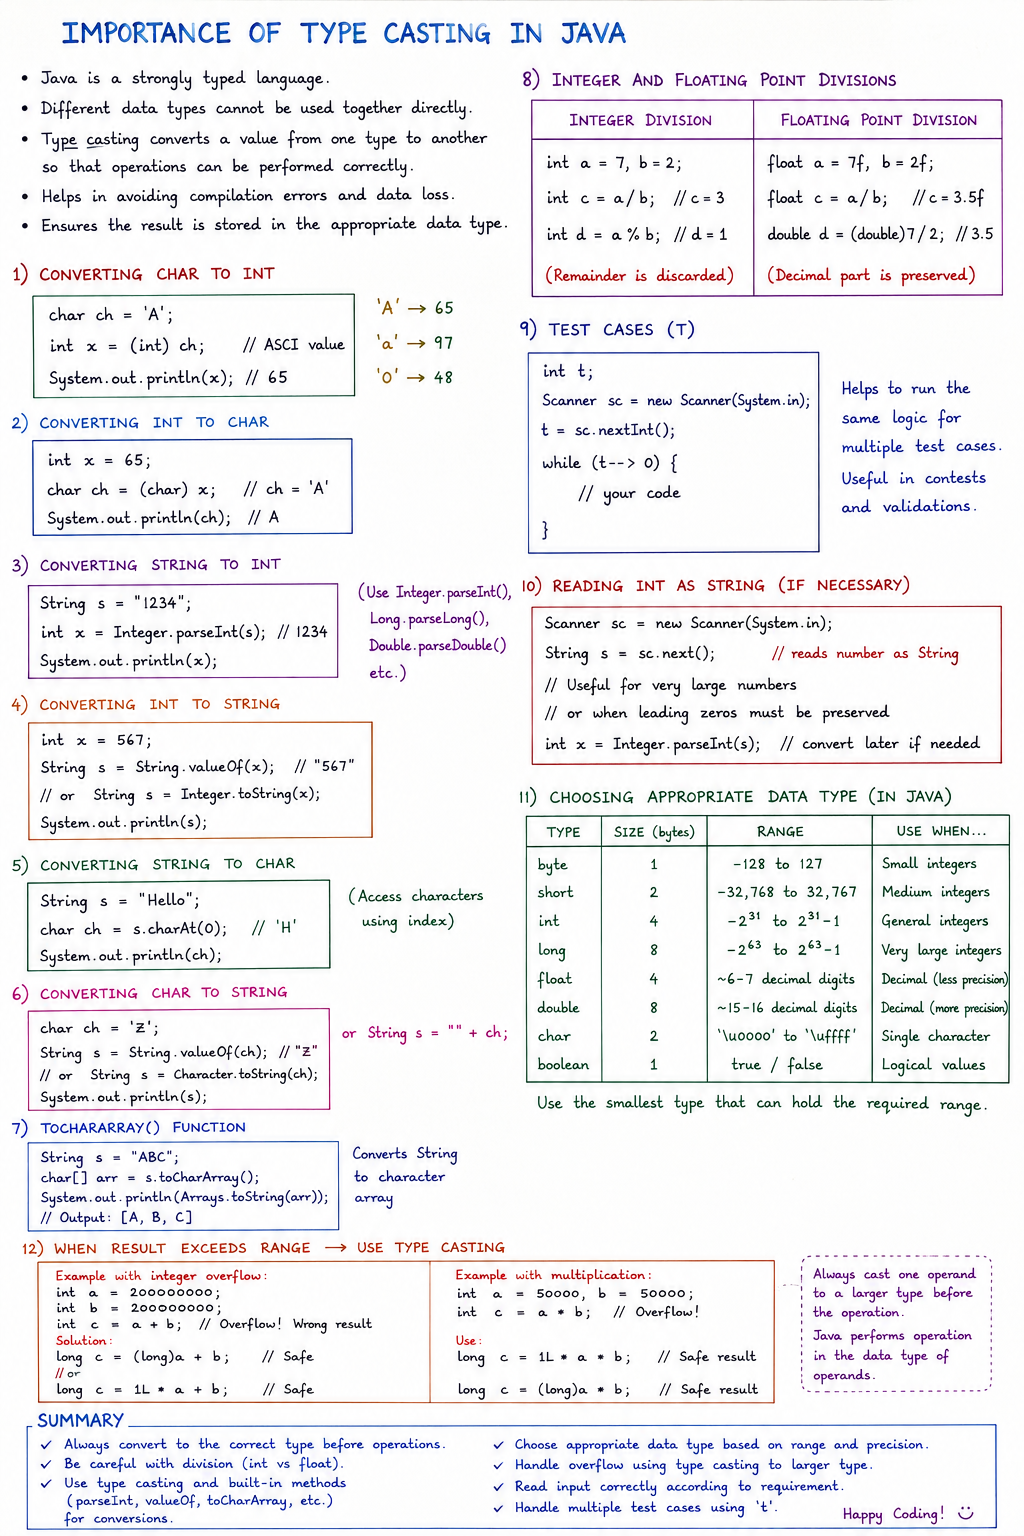 IMPORTANCE OF TYPE CASTING IN JAVA
• Java is a strongly typed language.
• Different data types cannot be used together directly.
• Type casting converts a value from one type to another
so that operations can be performed correctly.
• Helps in avoiding compilation errors and data loss.
• Ensures the result is stored in the appropriate data type.
1) CONVERTING CHAR TO INT
char ch = 'A';
int x = (int) ch; // ASCI value
System.out.println(x); // 65
'A' → 65
'a' → 97
'0' → 48
2) CONVERTING INT TO CHAR
int x = 65;
char ch = (char) x; // ch = 'A'
System.out.println(ch); // A
3) CONVERTING STRING TO INT
String s = "1234";
int x = Integer.parseInt(s); // 1234
System.out.println(x);
(Use Integer.parseInt(),
Long.parseLong(),
Double.parseDouble()
etc.)
4) CONVERTING INT TO STRING
int x = 567;
String s = String.valueOf(x); // "567"
// or String s = Integer.toString(x);
System.out.println(s);
5) CONVERTING STRING TO CHAR
String s = "Hello";
char ch = s.charAt(0); // 'H'
System.out.println(ch);
(Access characters
using index)
6) CONVERTING CHAR TO STRING
char ch = 'Z';
String s = String.valueOf(ch); // "Z"
// or String s = Character.toString(ch);
System.out.println(s);
or String s = "" + ch;
7) TOCHARARRAY() FUNCTION
String s = "ABC";
char[] arr = s.toCharArray();
System.out.println(Arrays.toString(arr));
// Output: [A, B, C]
Converts String
to character
array
8) INTEGER AND FLOATING POINT DIVISIONS
INTEGER DIVISION
int a = 7, b = 2;
int c = a/b; // c = 3
int d = a % b; // d = 1
(Remainder is discarded)
FLOATING POINT DIVISION
float a = 7f, b = 2f;
float c = a/b; // c = 3.5f
double d = (double)7/2; // 3.5
(Decimal part is preserved)
9) TEST CASES (T)
int t;
Scanner sc = new Scanner(System.in);
t = sc.nextInt();
while (t--> 0) {
// your code
}
Helps to run the
same logic for
multiple test cases.
Useful in contests
and validations.
10) READING INT AS STRING (IF NECESSARY)
Scanner sc = new Scanner(System.in);
String s = sc.next(); // reads number as String
// Useful for very large numbers
// or when leading zeros must be preserved
int x = Integer.parseInt(s); // convert later if needed
11) CHOOSING APPROPRIATE DATA TYPE (IN JAVA)
TYPE SIZE (bytes) RANGE USE WHEN...
byte 1 -128 to 127 Small integers
short 2 -32,768 to 32,767 Medium integers
int 4 -2³¹ to 2³¹-1 General integers
long 8 -2⁶³ to 2⁶³-1 Very large integers
float 4 ~6-7 decimal digits Decimal (less precision)
double 8 ~15-16 decimal digits Decimal (more precision)
char 2 '\u0000' to '\uffff' Single character
boolean 1 true / false Logical values
Use the smallest type that can hold the required range.
12) WHEN RESULT EXCEEDS RANGE → USE TYPE CASTING
Example with integer overflow:
int a = 2000000000;
int b = 2000000000;
int c = a + b; // Overflow! Wrong result
Solution:
long c = (long)a + b; // Safe
// or
long c = 1L * a + b; // Safe
Example with multiplication:
int a = 50000, b = 50000;
int c = a * b; // Overflow!
Use:
long c = 1L * a * b; // Safe result
long c = (long)a * b; // Safe result
Always cast one operand
to a larger type before
the operation.
Java performs operation
in the data type of
operands.
SUMMARY
✓ Always convert to the correct type before operations.
✓ Be careful with division (int vs float).
✓ Use type casting and built-in methods
(parseInt, valueOf, toCharArray, etc.)
for conversions.
✓ Choose appropriate data type based on range and precision.
✓ Handle overflow using type casting to larger type.
✓ Read input correctly according to requirement.
✓ Handle multiple test cases using 't'.
Happy Coding! ☺